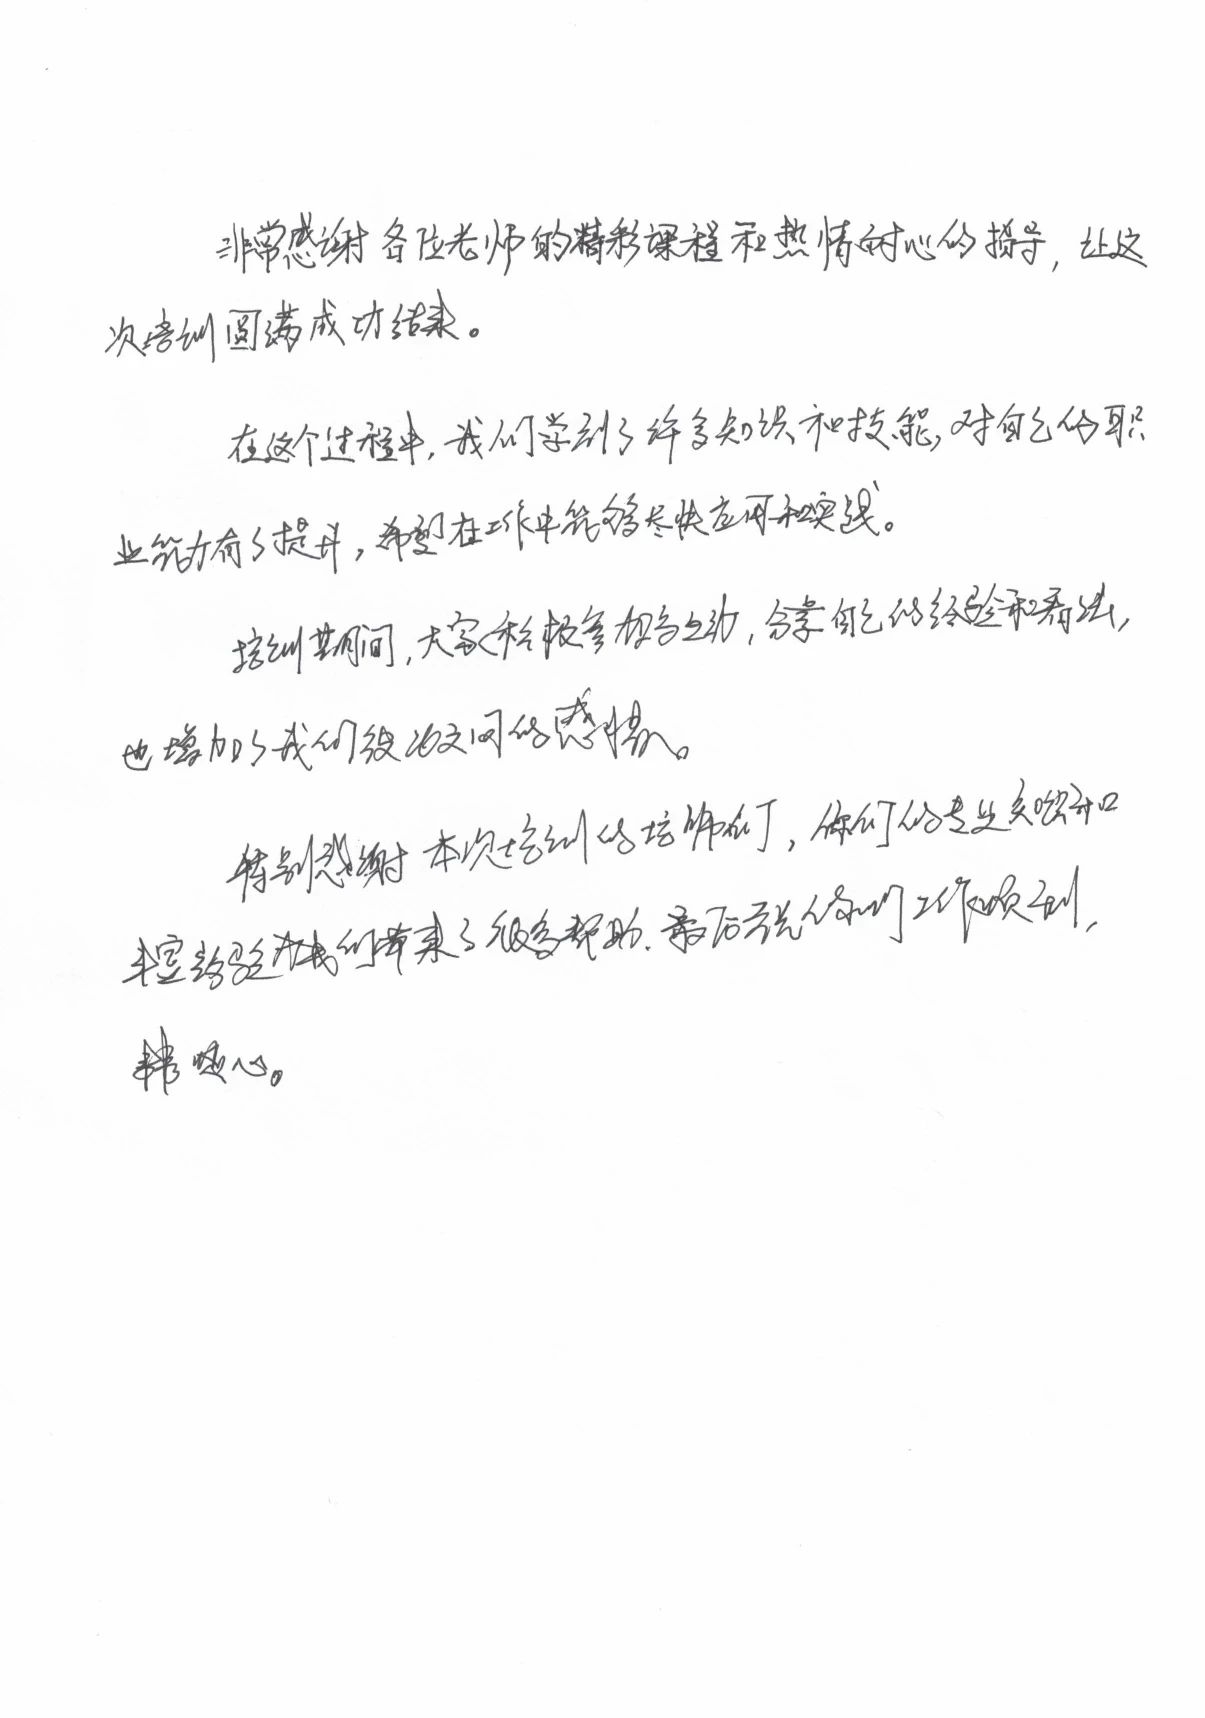 非常感谢各位老师的精彩课程和热情耐心的指导，让这
次培训圆满成功结束。
在这个过程中，我们学到了许多知识和技能，对自己的职
业能力有了提升，希望在工作中能够尽快应用和实践。
培训期间，大家积极参加与互动，分享自己的经验和看法，
也增加了我们彼此之间的感情。
特别感谢本次培训的培师们，你们的专业知识和
丰富经验为我们带来了很多帮助。最后祝你们工作顺利，
事事顺心。